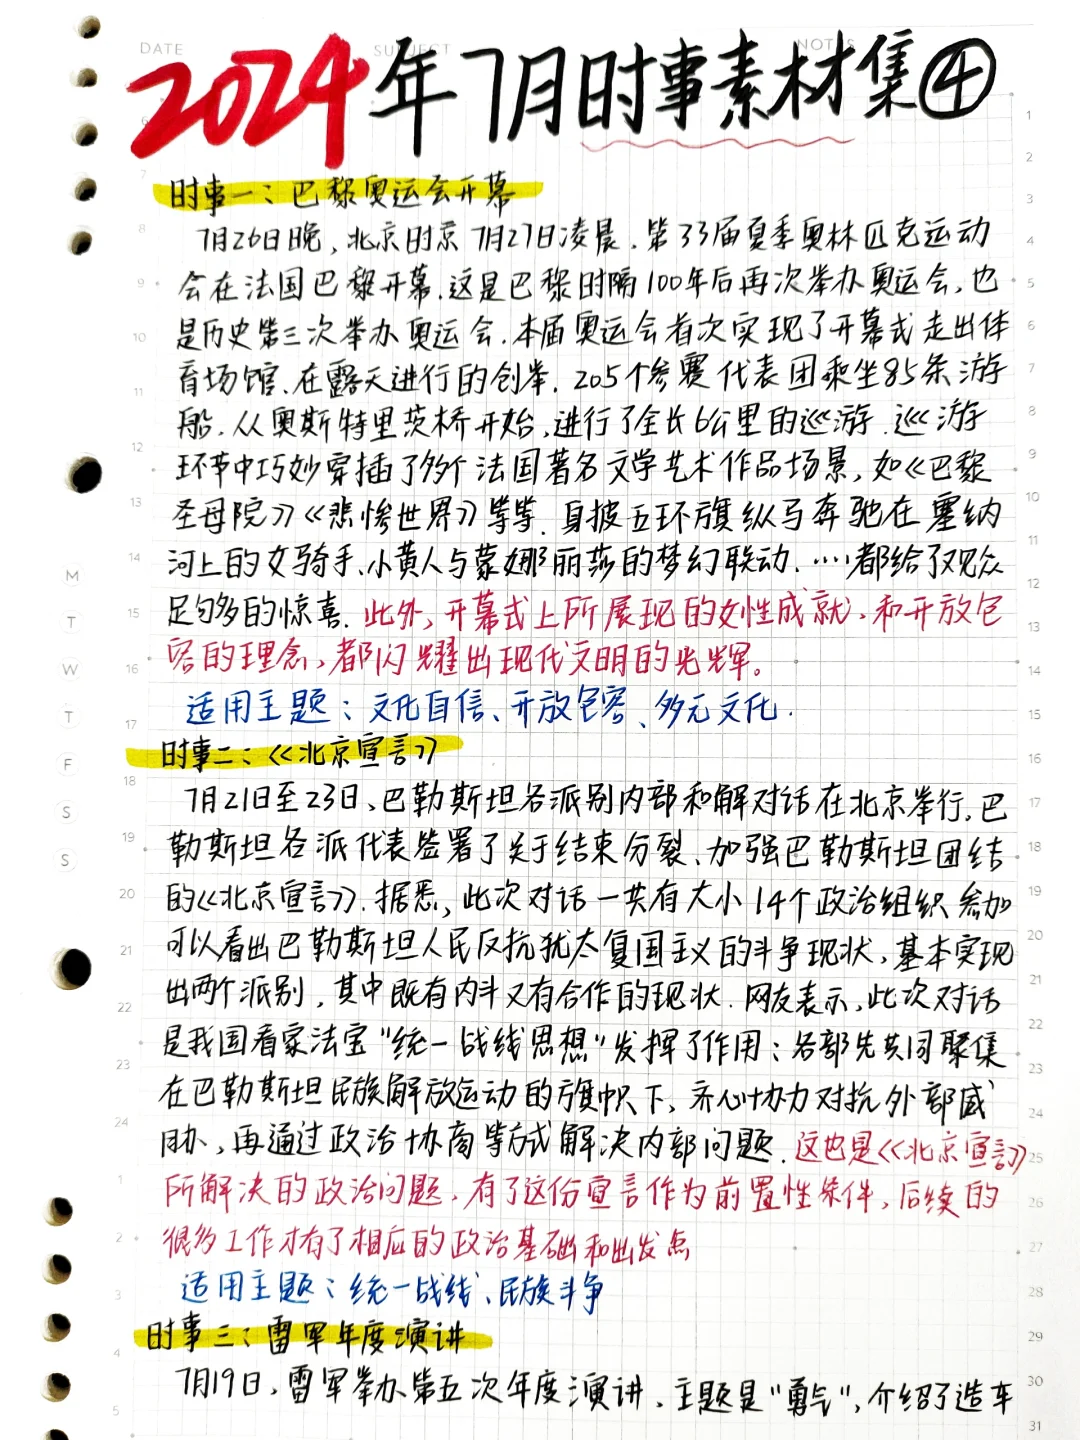 DATE SUBJECT NOTES
2024年7月时事素材集④
时事一：巴黎奥运会开幕
7月26日晚，北京时京7月27日凌晨，第33届夏季奥林匹克运动
会在法国巴黎开幕.这是巴黎时隔100年后再次举办奥运会，也
是历史第三次举办奥运会.本届奥运会首次实现了开幕式走出体
育场馆、在露天进行的创举.205个参赛代表团乘坐85条游
船，从奥斯特里茨桥开始，进行了全长6公里的巡游.巡游
环节中巧妙穿插了多个法国著名文学艺术作品场景，如《巴黎
圣母院》《悲惨世界》等等.身披五环旗纵马奔驰在塞纳
河上的女骑手、小黄人与蒙娜丽莎的梦幻联动.……都给了观众
足够多的惊喜.此外，开幕式上所展现的女性成就，和开放包
容的理念，都闪耀出现代文明的光辉。
适用主题：文化自信、开放包容、多元文化.
时事二：《北京宣言》
7月21日至23日，巴勒斯坦各派别内部和解对话在北京举行，巴
勒斯坦各派代表签署了关于结束分裂、加强巴勒斯坦团结
的《北京宣言》.据悉，此次对话一共有大小14个政治组织参加
可以看出巴勒斯坦人民反抗犹太复国主义的斗争现状，基本实现
出两个派别，其中既有内斗又有合作的现状.网友表示，此次对话
是我国看家法宝“统一战线思想”发挥了作用：各部先共同聚集
在巴勒斯坦民族解放运动的旗帜下，齐心协力对抗外部威
胁，再通过政治协商等方式解决内部问题.这也是《北京宣言》
所解决的政治问题，有了这份宣言作为前置性条件，后续的
很多工作才有了相应的政治基础和出发点
适用主题：统一战线、民族斗争
时事三：雷军年度演讲
7月19日，雷军举办第五次年度演讲，主题是“勇气”，介绍了造车